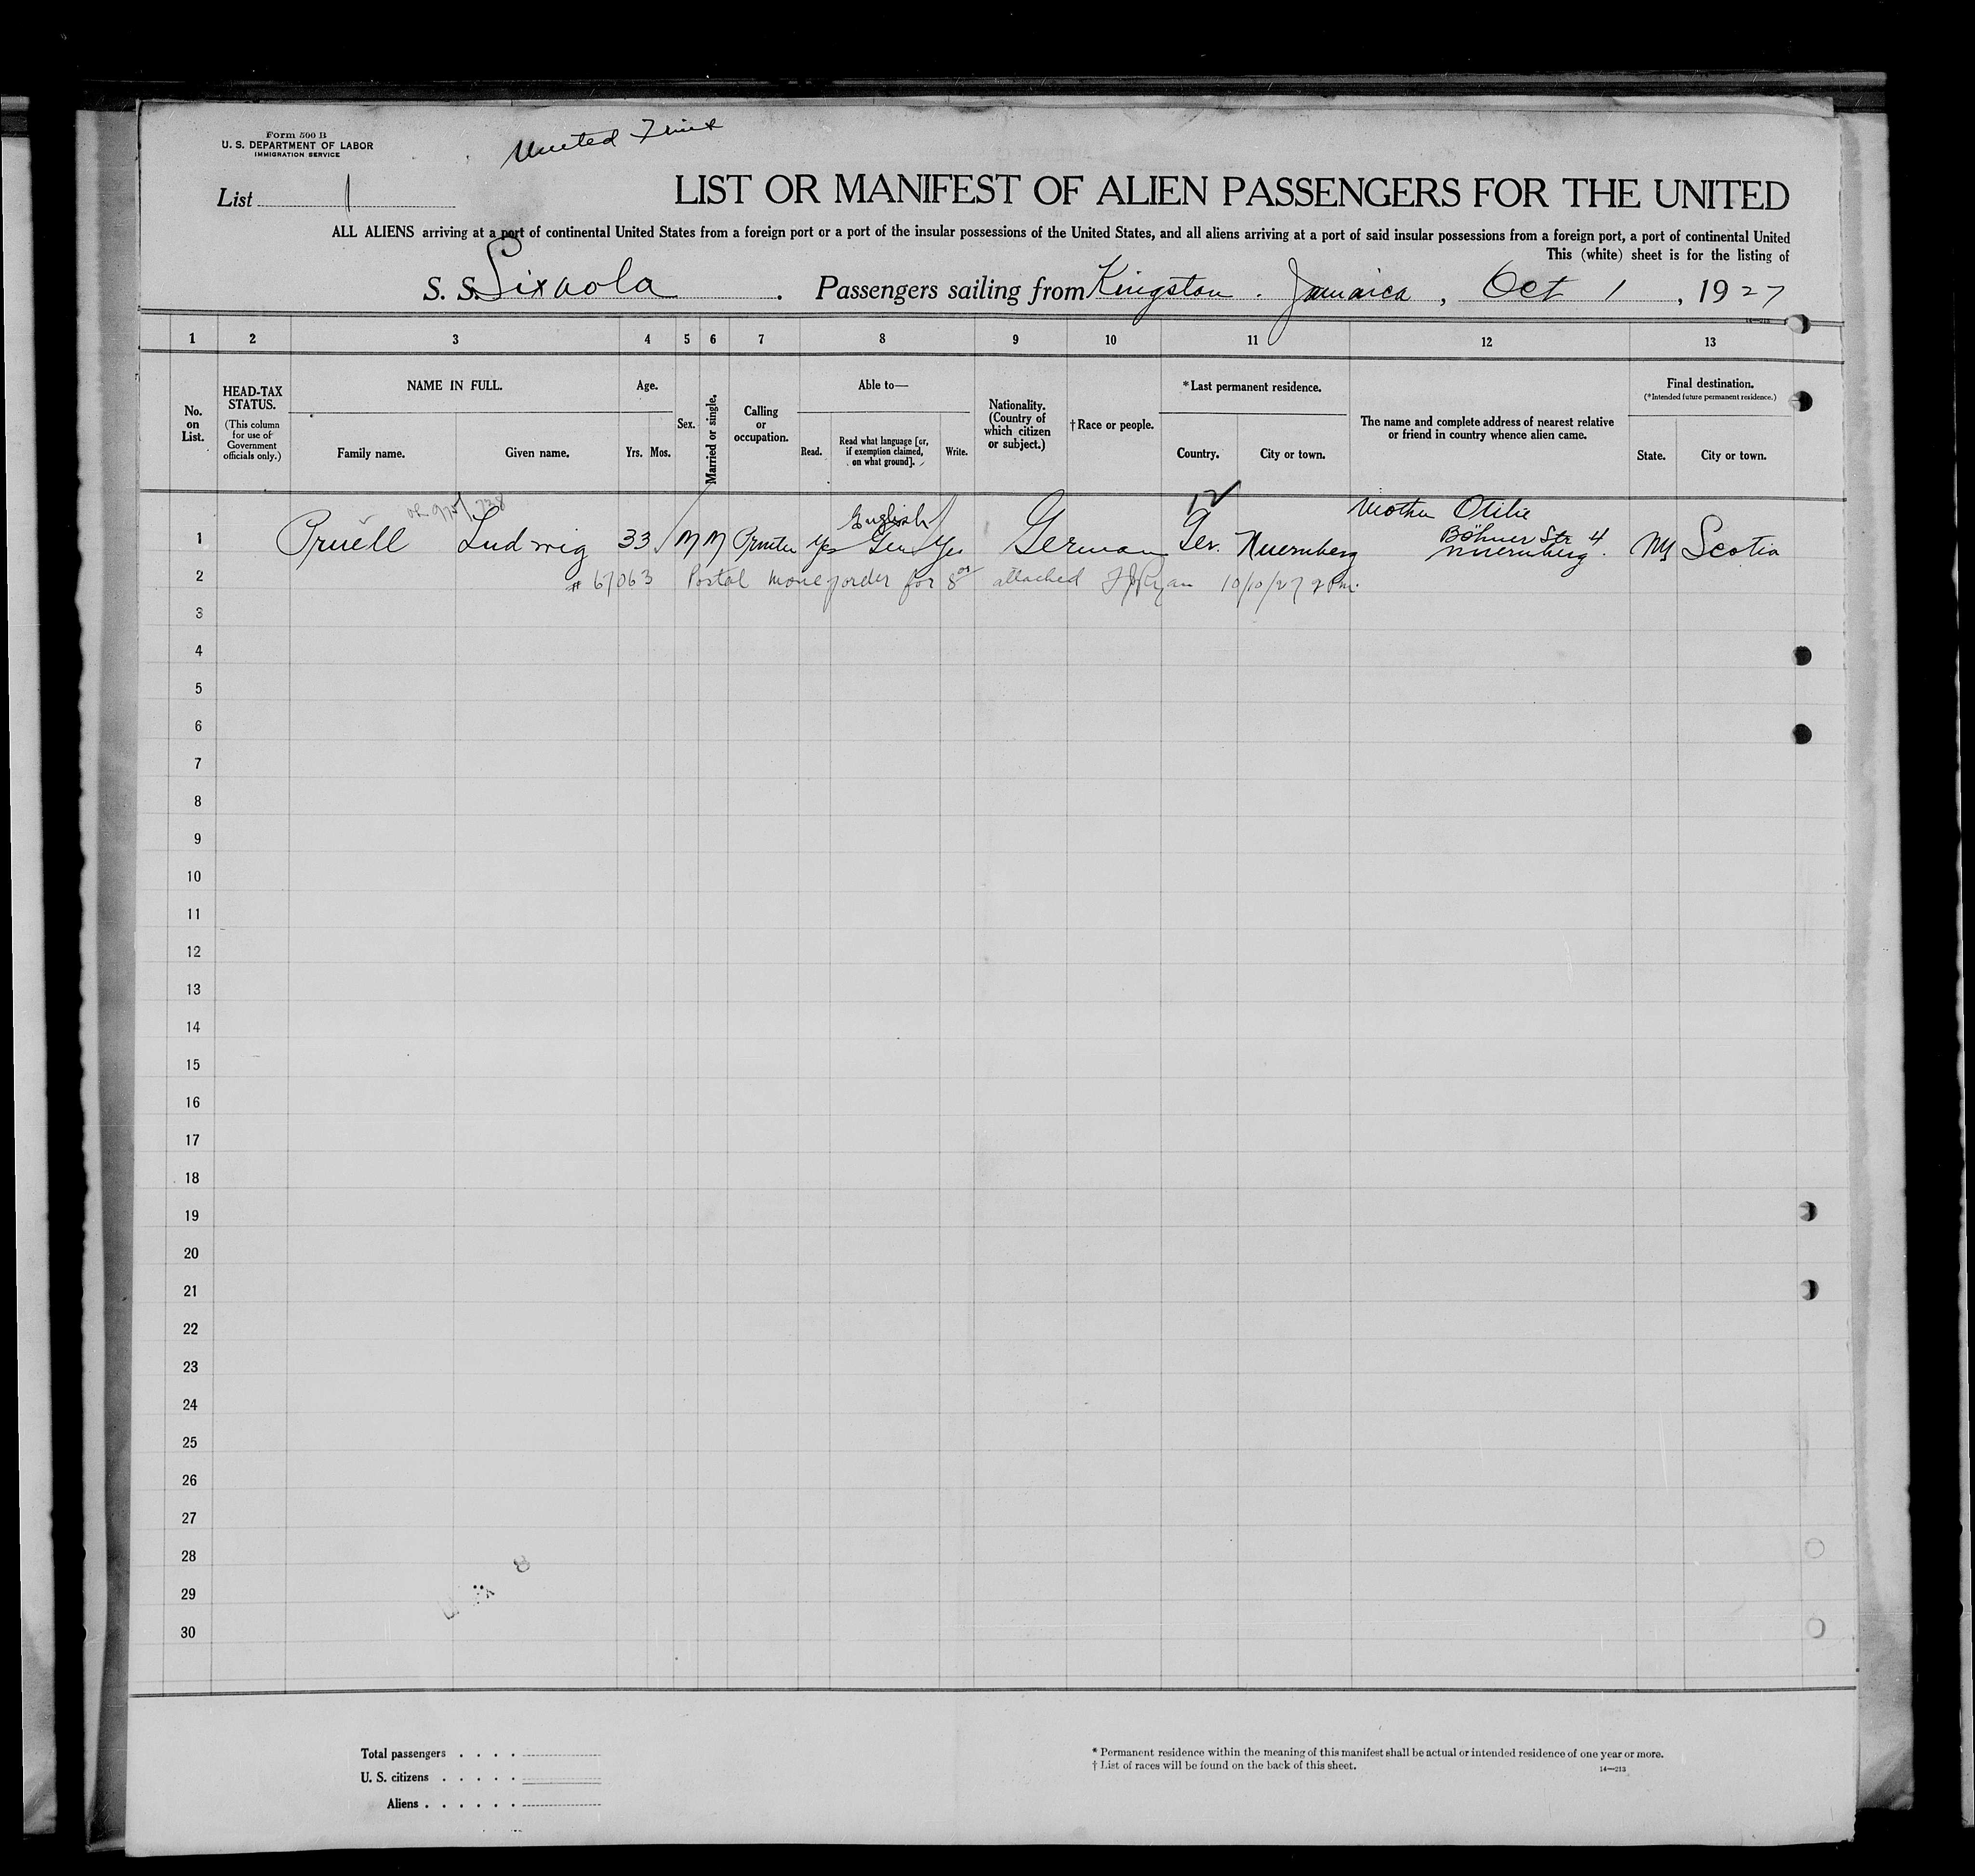 Form 500 B
U. S. DEPARTMENT OF LABOR
IMMIGRATION SERVICE
United Fruit
List 1
LIST OR MANIFEST OF ALIEN PASSENGERS FOR THE UNITED
ALL ALIENS arriving at a port of continental United States from a foreign port or a port of the insular possessions of the United States, and all aliens arriving at a port of said insular possessions from a foreign port, a port of continental United
This (white) sheet is for the listing of
S. S. Sixaola . Passengers sailing from Kingston . Jamaica , Oct 1 , 1927
1 2 3 4 5 6 7 8 9 10 11 12 13
No. on List.
HEAD-TAX STATUS.
(This column for use of Government officials only.)
NAME IN FULL.
Family name. Given name.
Age.
Yrs. Mos.
Sex.
Married or single.
Calling or occupation.
Able to—
Read. Read what language [or, if exemption claimed, on what ground]. Write.
Nationality. (Country of which citizen or subject.)
† Race or people.
* Last permanent residence.
Country. City or town.
The name and complete address of nearest relative or friend in country whence alien came.
Final destination.
(* Intended future permanent residence.)
State. City or town.
12
English
Mother Otilie
Böhner Str 4
1 Pruell Ludwig 33 M M Printer Yes Ger Yes German Ger. Nuernberg Nuernberg. NY Scotia
2 # 67063 Postal money order for 8 attached Ryan 10/10/27 2 Pm.
3
4
5
6
7
8
9
10
11
12
13
14
15
16
17
18
19
20
21
22
23
24
25
26
27
28
29
30
Total passengers . . . .
U. S. citizens . . . . .
Aliens . . . . . .
* Permanent residence within the meaning of this manifest shall be actual or intended residence of one year or more.
† List of races will be found on the back of this sheet.
14—213